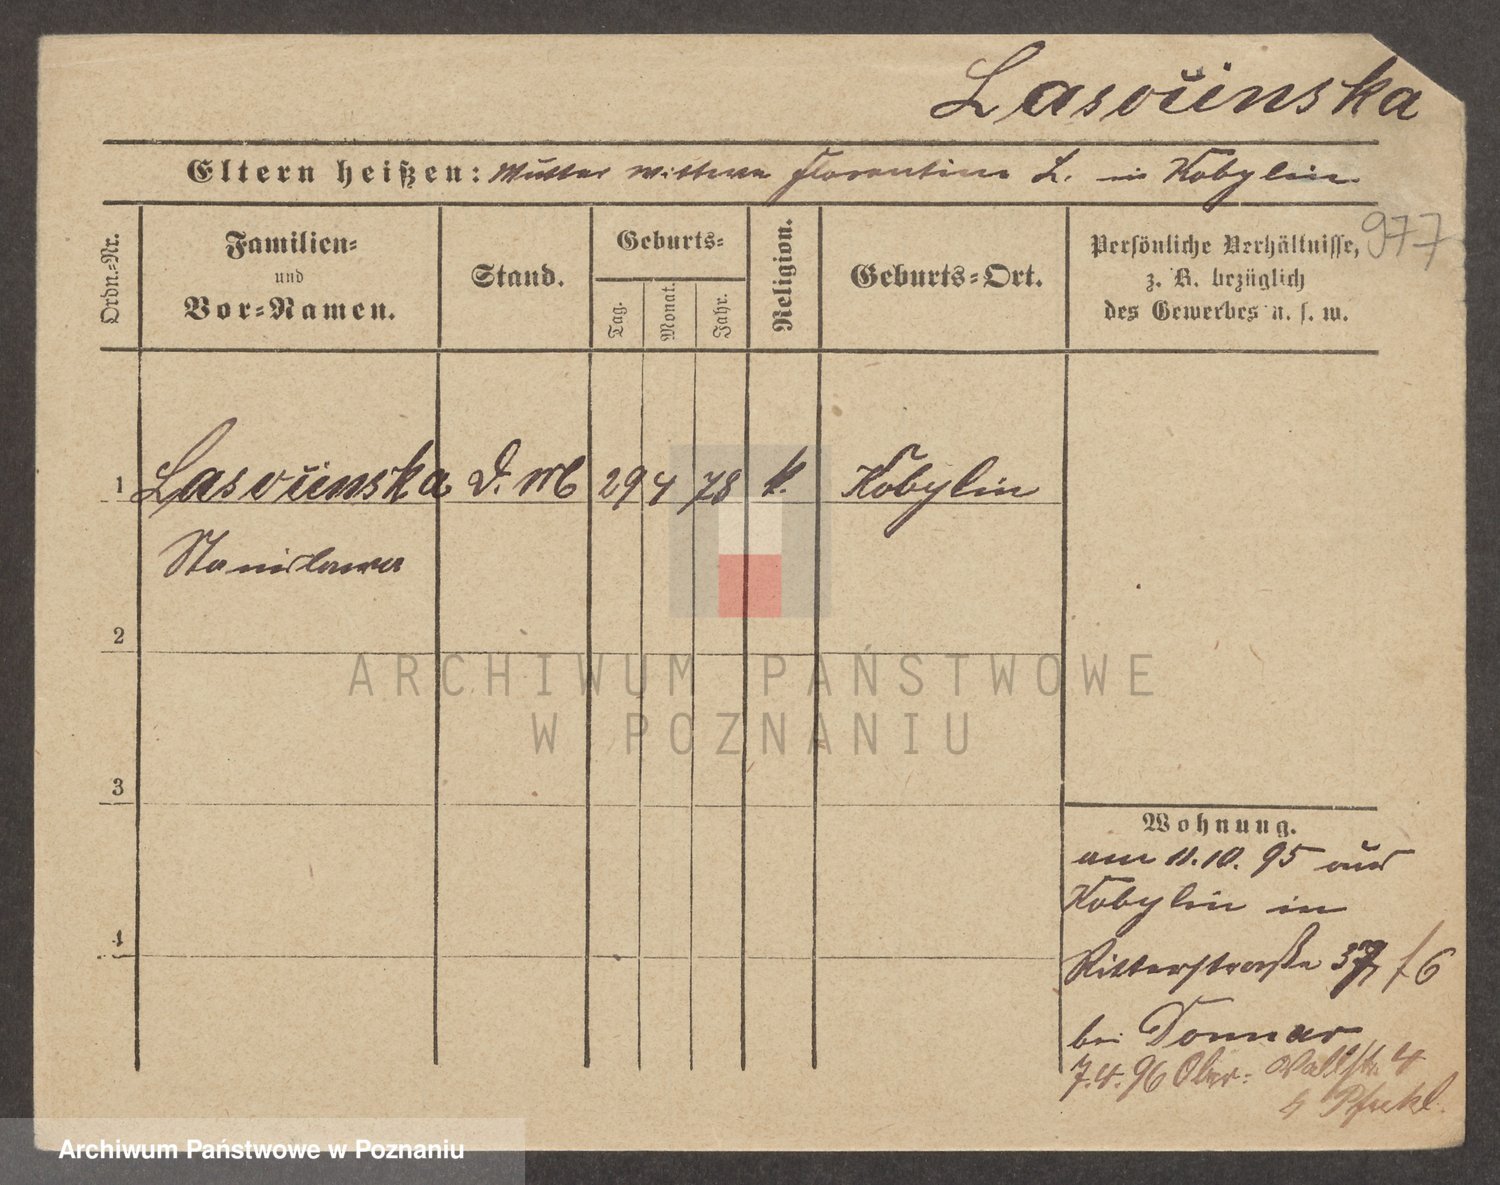 Lasovúnska
Eltern heißen: Mutter Wittwe Florentine L. in Kobylin
977
Ordn.-Nr.
Familien-
und
Vor-Namen.
Stand.
Geburts-
Tag.
Monat.
Jahr.
Religion.
Geburts-Ort.
Persönliche Verhältnisse,
z. B. bezüglich
des Gewerbes u. s. w.
1 Lasovúnska D. M 29 4 78 k. Kobylin
Stanislawa
2
3
4
Wohnung.
am 11.10.95 aus
Kobylin in
Ritterstraße 37 / 6
bei Donnar
7.4.96 Ober-Wallstr. 4
ARCHIWUM PAŃSTWOWE
W POZNANIU
Archiwum Państwowe w Poznaniu